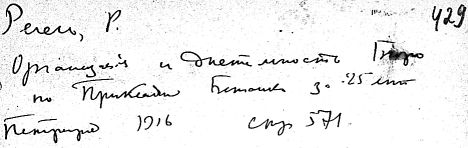 429
Регель, Р.
Организация и деятельность Бюро
по Прикладн Ботанике за 25 лет
Петроград 1916 стр 571.